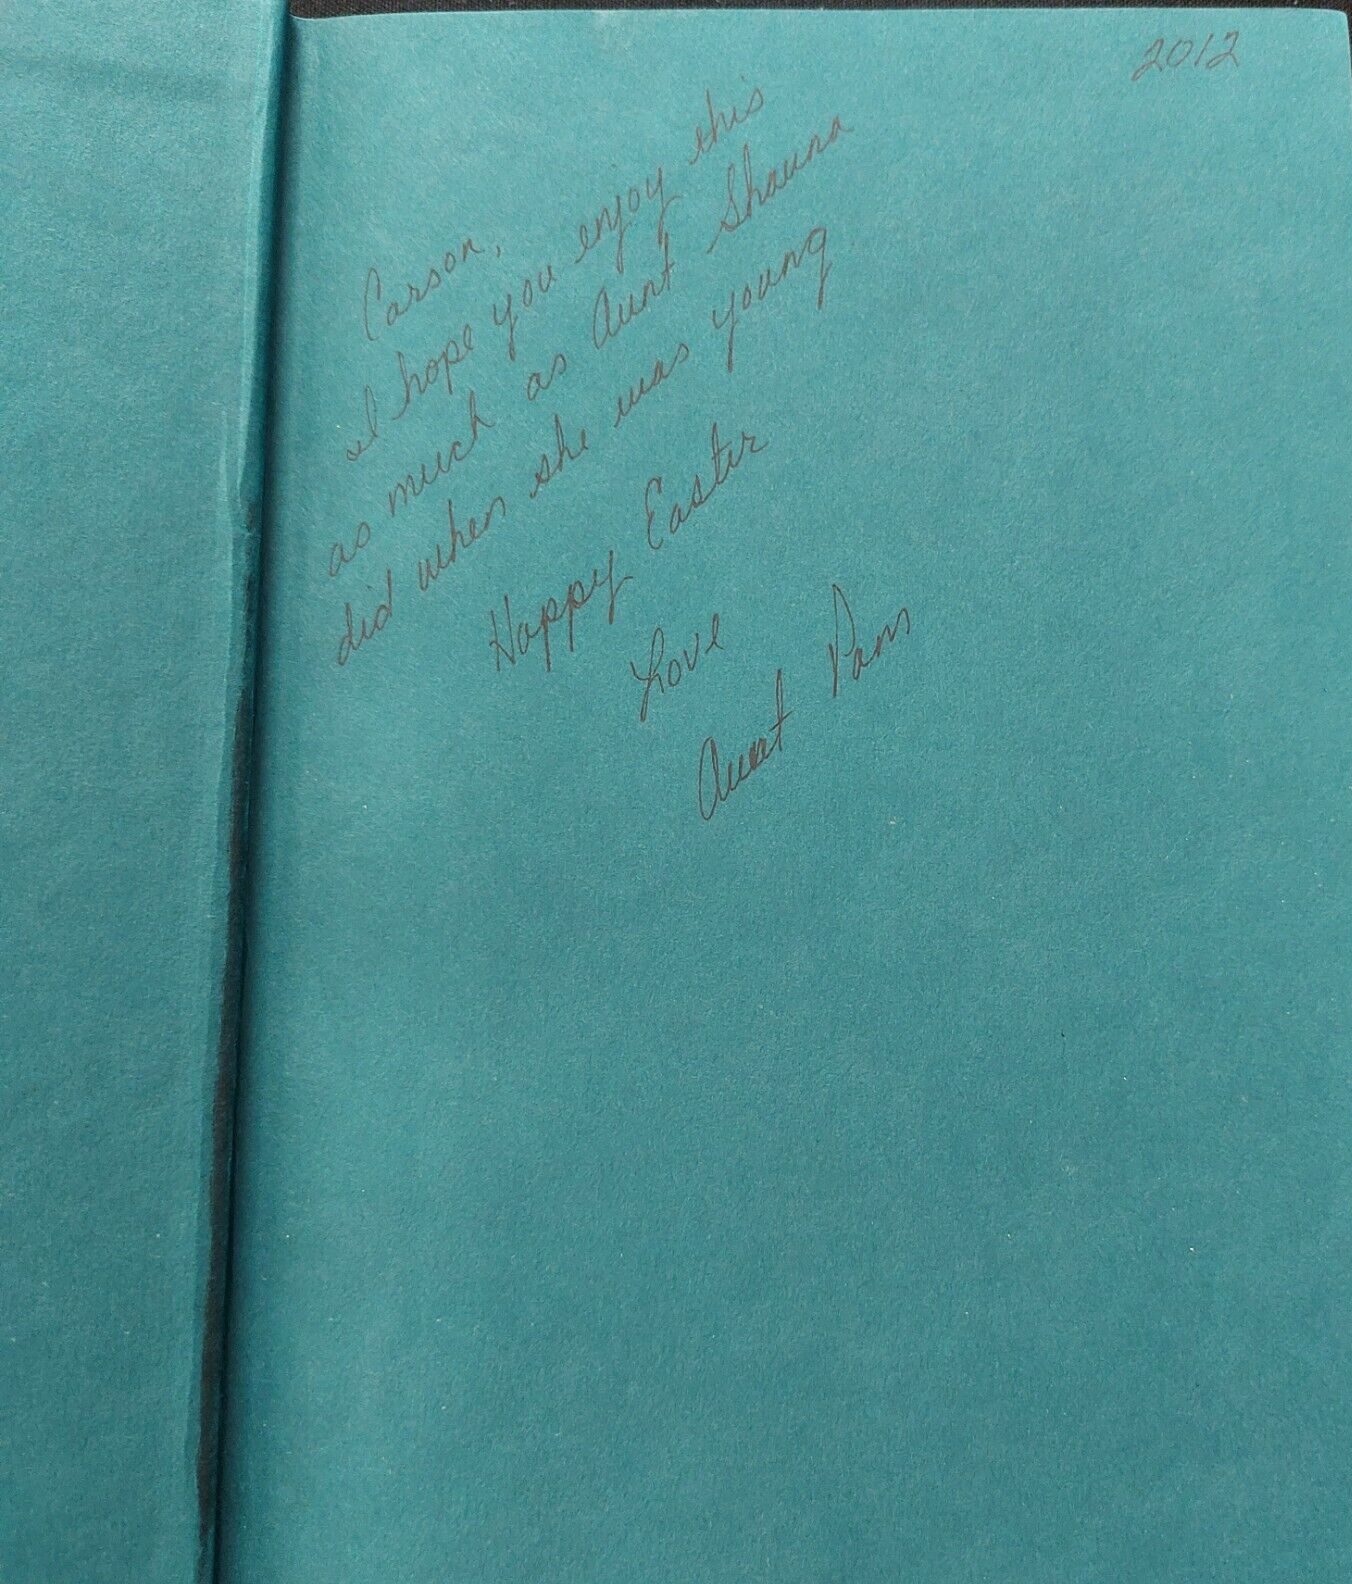 2012
Carson,
I hope you enjoy this
as much as Aunt Shauna
did when she was young
Happy Easter
Love
Aunt Pam